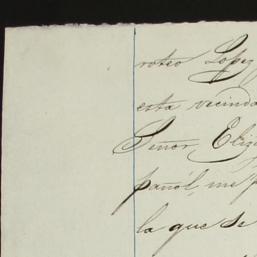 roteo Lopez
esta vecinda
Señor, Eliz
pañol, me p
la que se